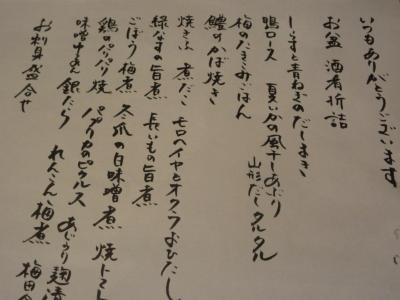 いつもありがとうございます
お盆 酒肴折詰
しらすと青ねぎのだしまき
鴨ロース 夏いかの風干しあぶり
山形だしタルタル
梅のたきこみごはん
鱧のかば焼き
焼きふ 煮だこ モロヘイヤとオクラおひたし
緑なすの旨煮 長いもの旨煮
ごぼう梅煮 冬瓜の白味噌煮 焼トマト
鶏のパリパリ焼 パプリカのピクルス あじうり麹漬
味噌中さん 銀だら れんこん梅煮 梅
お刺身盛合せ